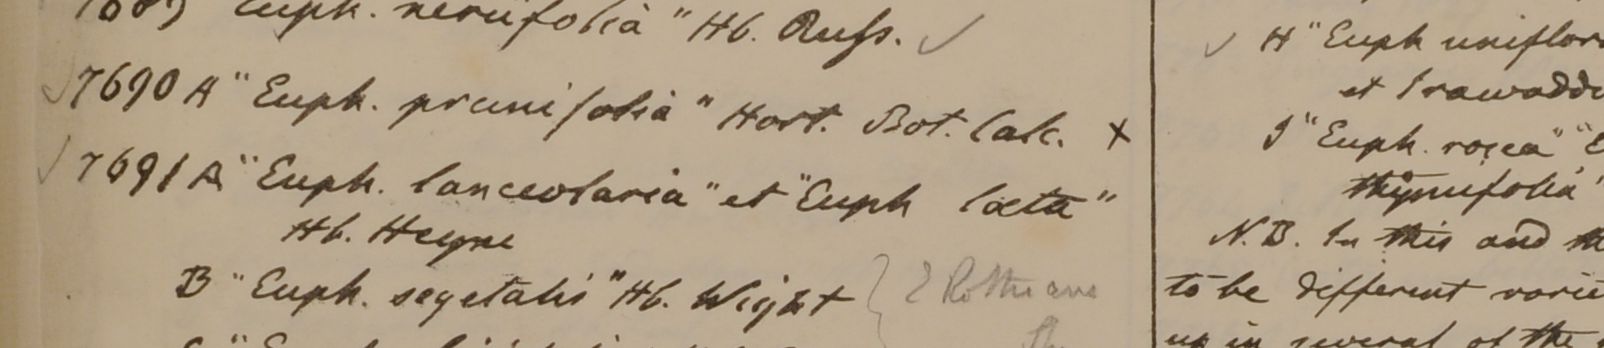 Euph. neriifolia" Hb. Russ. ✓
✓ 7690 A "Euph. prunifolia" Hort. Bot. Calc. ×
✓ 7691 A "Euph. lanceolaria" et "Euph laeta"
Hb. Heyne
B "Euph. segetalis" Hb. Wight } E Rothiana
✓ H "Euph uniflor
et Irawadd
I "Euph. rosea" "
thymifolia"
N.B. In this and
to be different varie
up in several of the